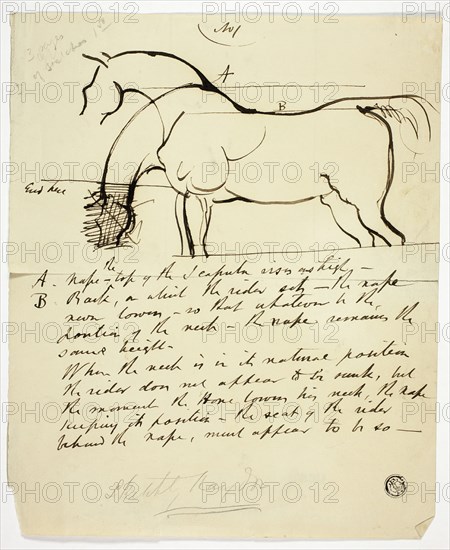 No 1
A
B
End here
the
A - nape - top of the Scapula rises as high -
B Back, on which the rider sits - the nape
never lowers - so that whatever be the
position of the neck - the nape remains the
same height -
When the neck is in its natural position
the rider does not appear to be sunk, but
the moment the Horse lowers his neck, the nape
keeping its position - the seat of the rider
behind the nape, must appear to be so -